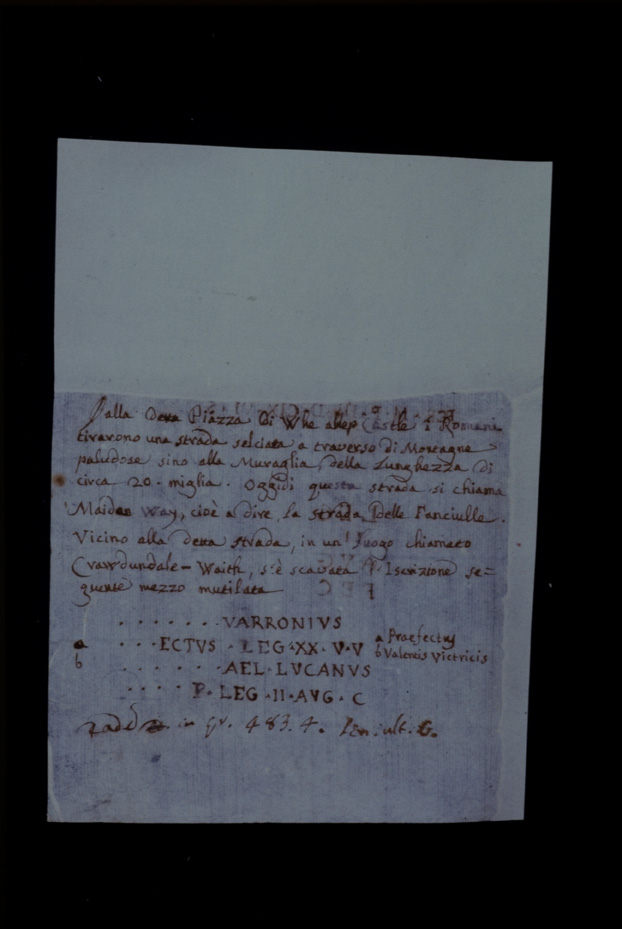 Dalla detta Piazza di Whellep Castle i Romani
tirarono una strada selciata a traverso di Montagne
paludose sino alla Muraglia della Lunghezza di
circa 20. miglia. Oggidì questa strada si chiama
Maiden Way, cioè a dire la strada delle Fanciulle.
Vicino alla detta strada, in un luogo chiamato
Crawdundale-Waith, s'è scavata l'Iscrizione se=
guente mezzo mutilata
. . . . . . VARRONIVS
a . . . ECTVS . LEG . XX . V . V a Praefectus
b b Valentis Victricis
. . . . . . AEL . LVCANVS
. . . . P . LEG . II . AVG . C
in gr. 483. 4. lin. ult. G.